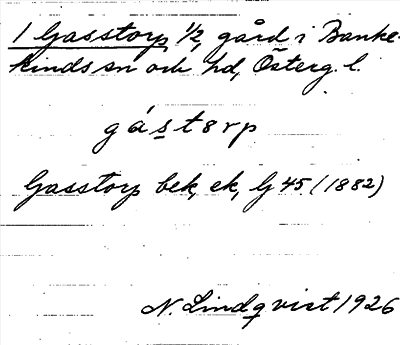 1 Gasstorp, 1/2, gård i Banke-
kinds sn och hd, Österg. l.
gástsrp
Gasstorp bek, ek, G 45 (1882)
N. Lindqvist 1926